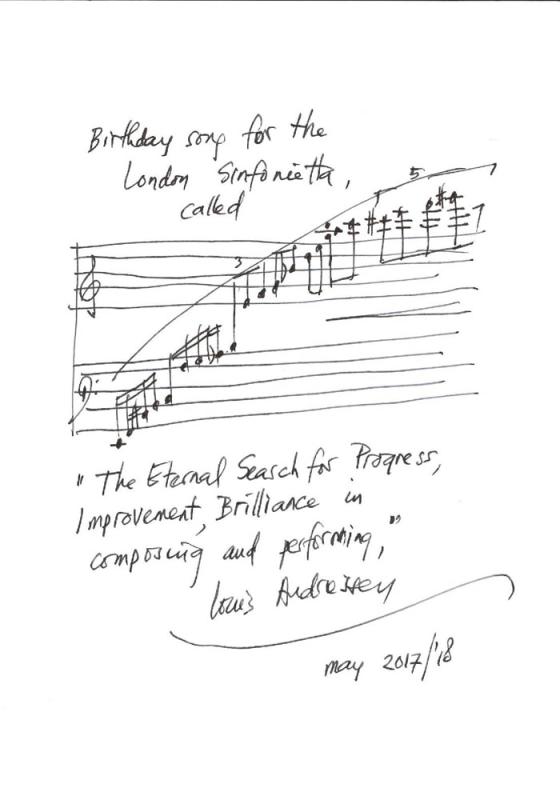 Birthday song for the
London Sinfonietta,
called
3
5
"The Eternal Search for Progress,
Improvement, Brilliance in
composing and performing,"
Louis Andriessen
may 2017/'18